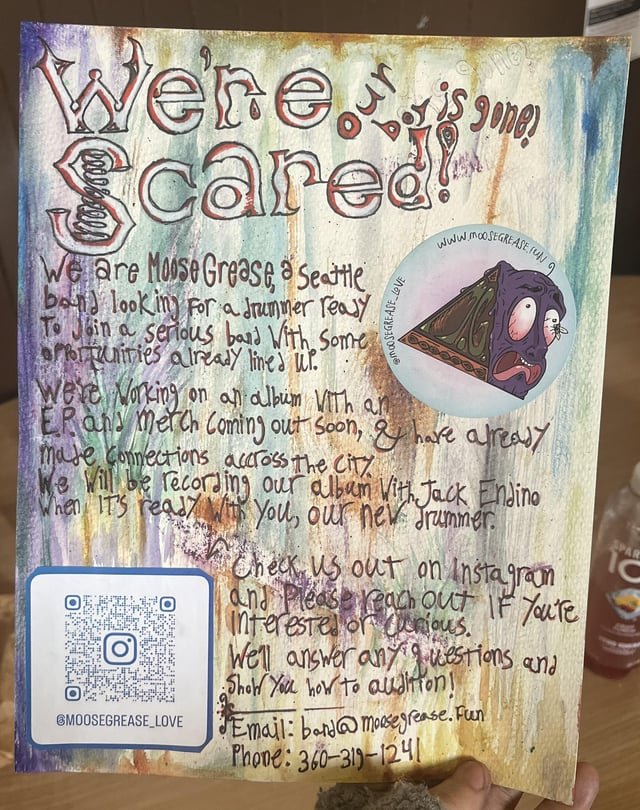 We're
our boy is gone!
Scared!
We are MooseGrease, a Seattle
band looking for a drummer ready
to join a serious band with some
opportunities already lined up.
We're working on an album with an
E.P. and merch coming out soon, & have already
made connections accross the city.
We will be recording our album with Jack Endino
when it's ready with you, our new drummer.
WWW.MOOSEGREASE.FUN
@MOOSEGREASE_LOVE
Check us out on Instagram
and please reach out if you're
interested or curious.
We'll answer any questions and
show you how to audition!
Email: band@moosegrease.fun
Phone: 360-319-1241
@MOOSEGREASE_LOVE